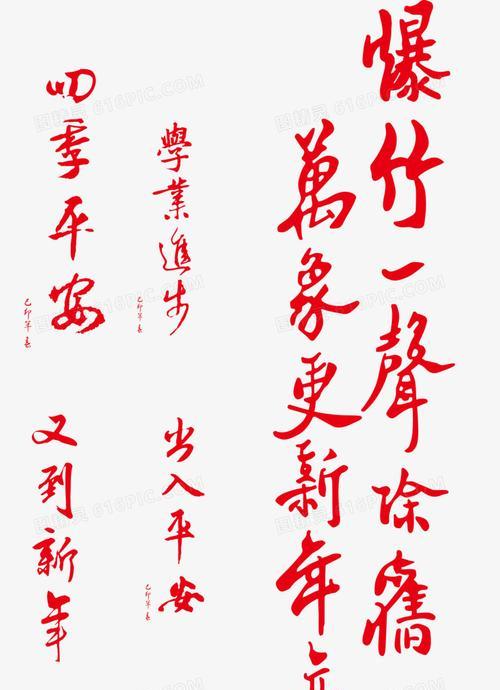 爆竹一聲除舊
萬象更新年年
學業進步
己卯年春
四季平安
己卯年春
出入平安
己卯年春
又到新年
图精灵 616PIC.COM